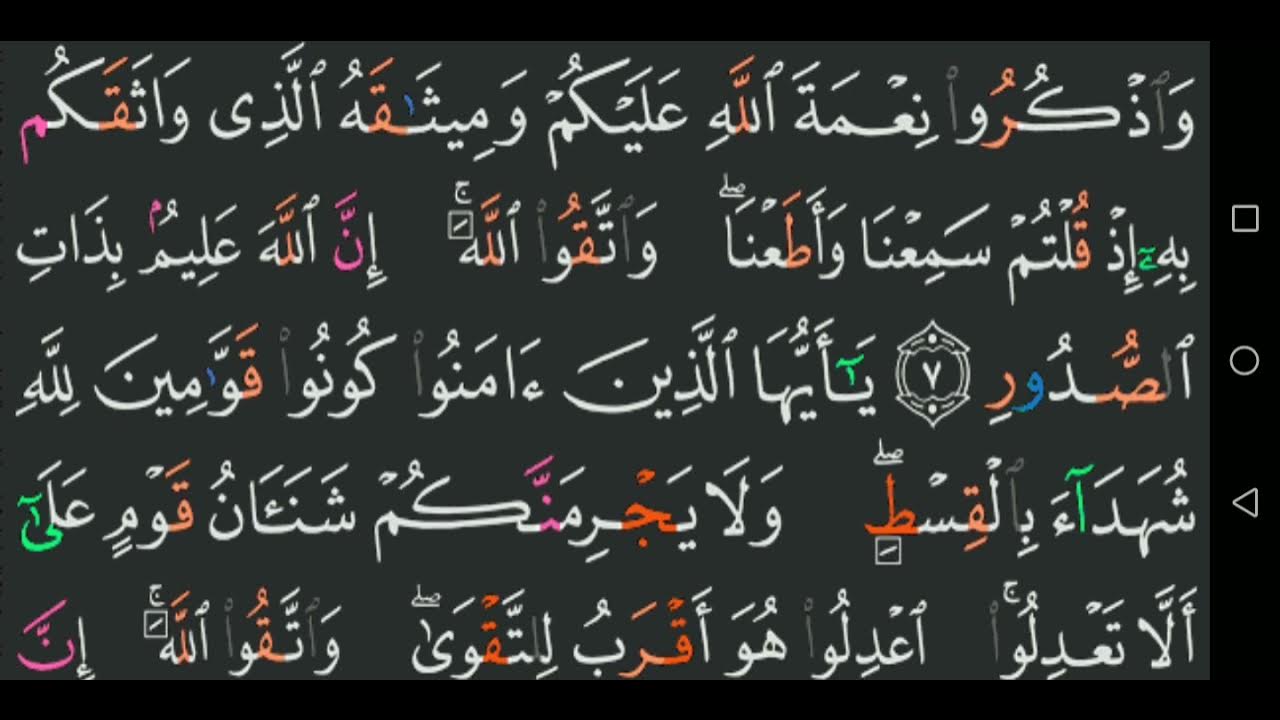 وَٱذۡكُرُوا۟ نِعۡمَةَ ٱللَّهِ عَلَيۡكُمۡ وَمِيثَـٰقَهُ ٱلَّذِى وَاثَقَكُم
بِهِۦۤ إِذۡ قُلۡتُمۡ سَمِعۡنَا وَأَطَعۡنَاۖ وَٱتَّقُوا۟ ٱللَّهَۚ إِنَّ ٱللَّهَ عَلِيمُۢ بِذَاتِ
ٱلصُّدُورِ ٧ يَـٰۤأَيُّهَا ٱلَّذِينَ ءَامَنُوا۟ كُونُوا۟ قَوَّ ٰمِينَ لِلَّهِ
شُهَدَاۤءَ بِٱلۡقِسۡطِۖ وَلَا يَجۡرِمَنَّكُمۡ شَنَـَٔانُ قَوۡمٍ عَلَىٰۤ
أَلَّا تَعۡدِلُوا۟ۚ ٱعۡدِلُوا۟ هُوَ أَقۡرَبُ لِلتَّقۡوَىٰۖ وَٱتَّقُوا۟ ٱللَّهَۚ إِنَّ